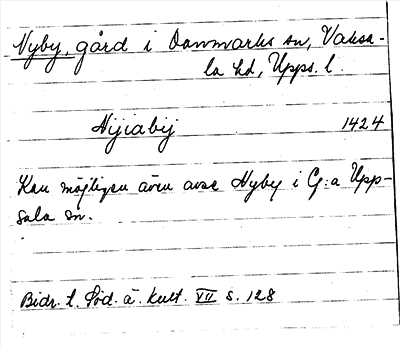 Nyby, gård i Danmarks sn, Vaksa-
la hd, Upps. l.
Nijiabij 1424
Kan möjligen även avse Nyby i G:a Upp-
sala sn.
Bidr. t. Söd. ä. kult. VII s. 128